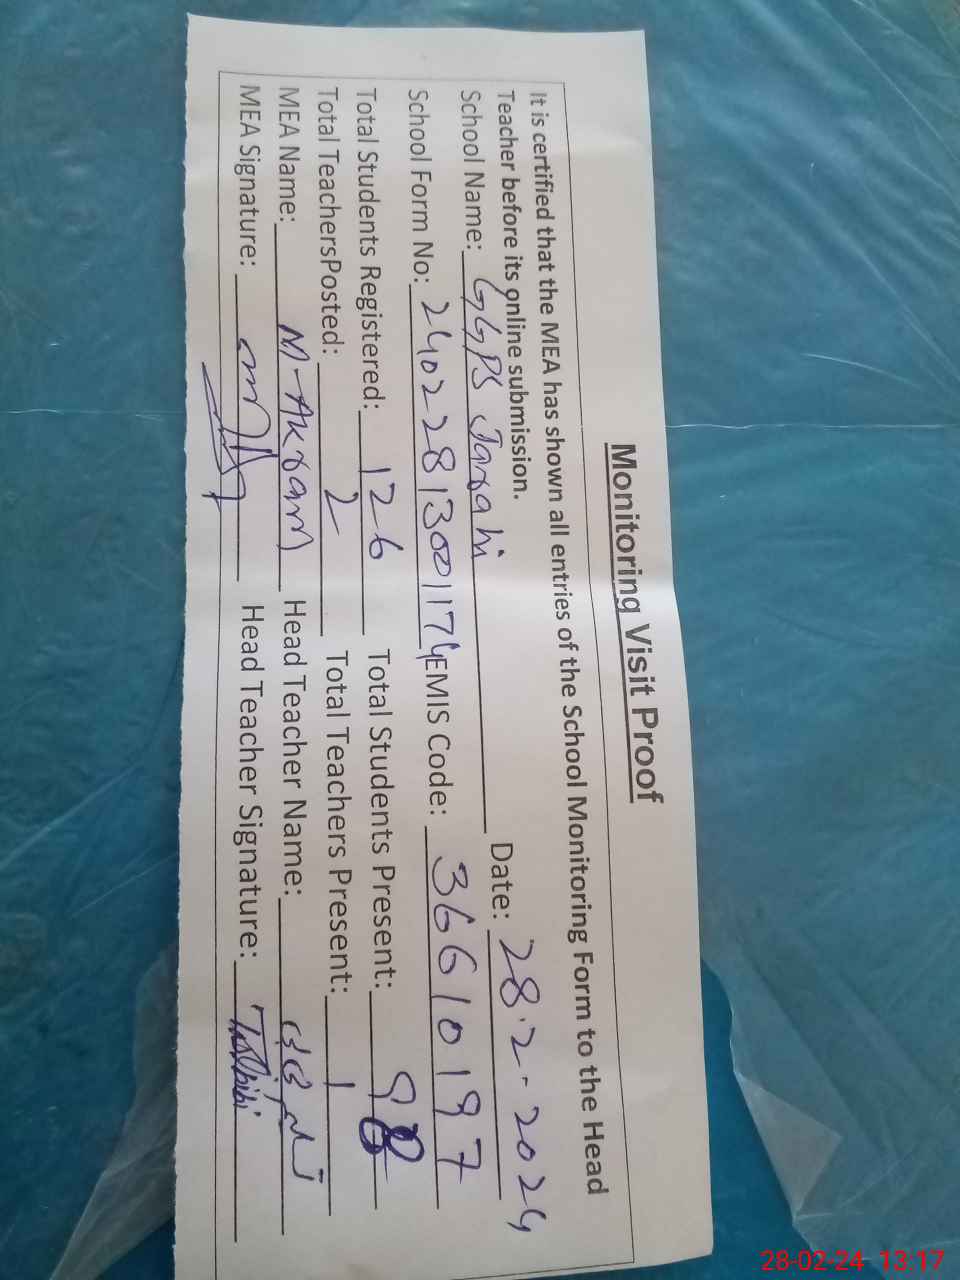 Monitoring Visit Proof
It is certified that the MEA has shown all entries of the School Monitoring Form to the Head
Teacher before its online submission.
School Name: GGPS Jarahi Date: 28.2.2024
School Form No: 24022813001174 EMIS Code: 36610197
Total Students Registered: 126 Total Students Present: 98
Total TeachersPosted: 2 Total Teachers Present: 1
MEA Name: M-Akram Head Teacher Name:
MEA Signature: Head Teacher Signature:
28-02-24 13:17